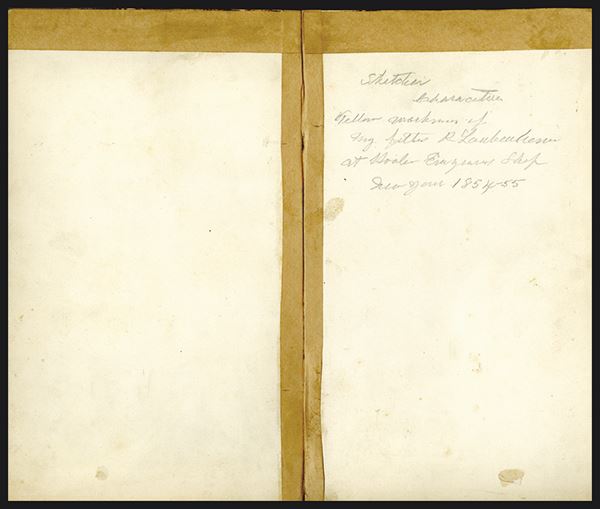 Sketches
Characters
Fellow workmen of
my father R Laubenheimer
at Poole Engravers Shop
New York 1854-55